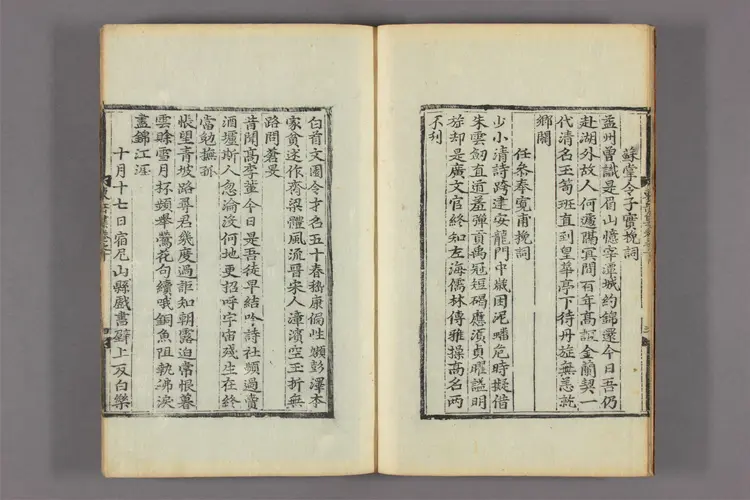 蘇掌令子寶挽詞
孟州曾識是眉山憶宰潭城約錦還今日吾仍
赴湖外故人何遽隔冥間百年高誼金蘭契一
代清名玉筍班直到皇華亭下待丹旌無恙訖
鄉關
任參奉寬甫挽詞
少小清詩跨建安龍門中歲困泥蟠危時擬借
朱雲劒直道羞彈貢禹冠短碣應須貞曜謚明
旌却是廣文官終知左海儒林傳雅操高名兩
不刋
白首文園令才名五十春嵇康偏性嬾彭澤本
家貧述作齊梁體風流晋宋人漳濱空玉折無
路問蒼旻
昔聞高李輩今日是吾徒早結吟詩社頻過賣
酒壚斯人忽淪沒何地更招呼宇宙殘生在終
當勉撫孤
悵望青坡路尋君幾度過詎知朝露迫常恨暮
雲賖雪月杯頻舉鶯花句續哦銅魚阻執紼淚
盡錦江涯
十月十七日宿尼山縣戲書壁上反白樂